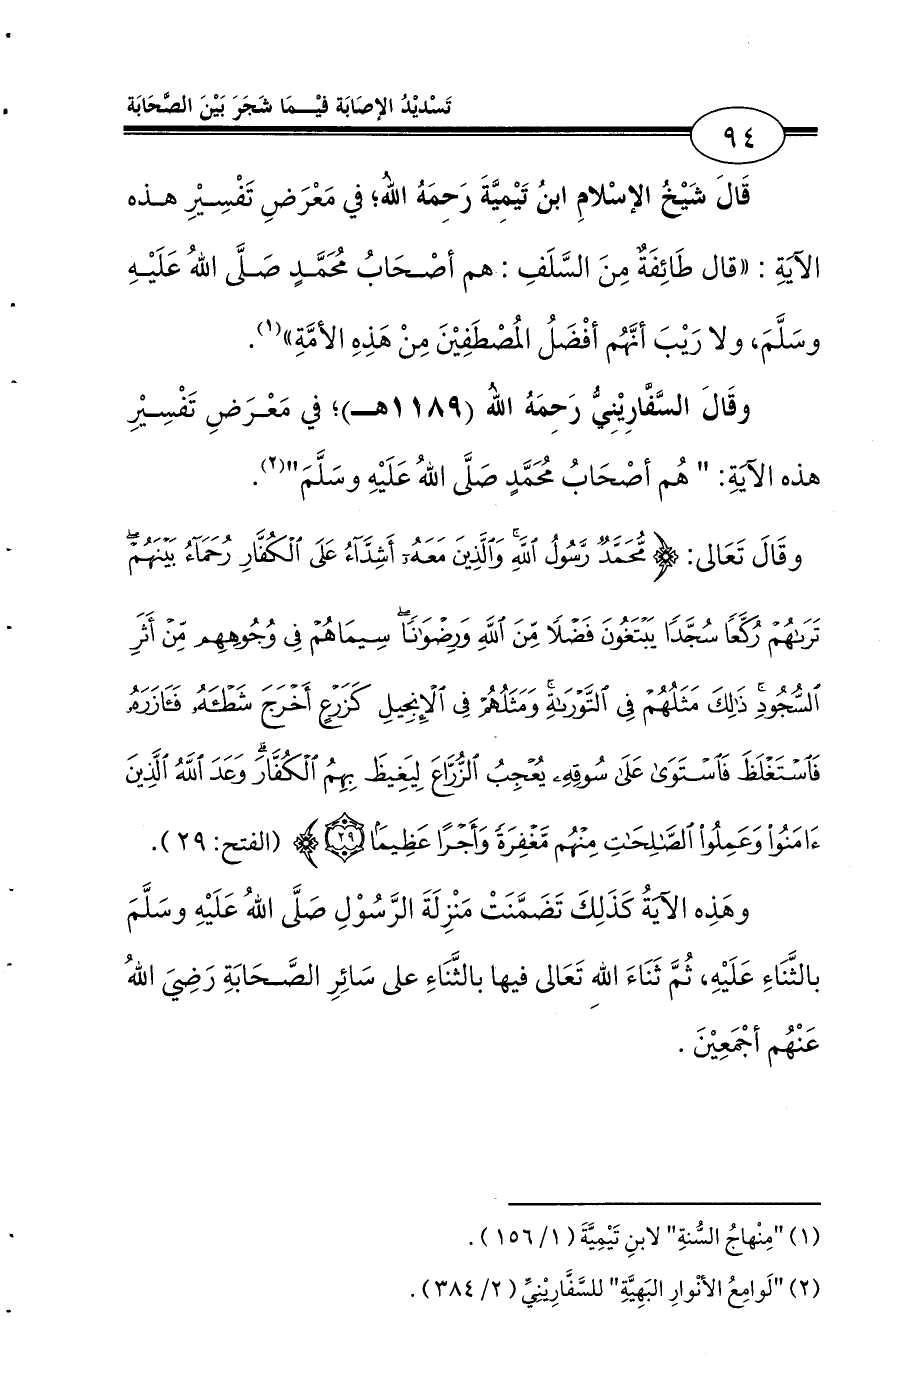 تَسْدِيْدُ الإصَابَة فيْــمَا شَجَرَ بَيْنَ الصَّحَابَة
٩٤
قَالَ شَيْخُ الإسْلامِ ابنُ تَيْمِيَّةَ رَحِمَهُ اللهُ؛ في مَعْرَضِ تَفْسِــيْرِ هــذه
الآيَةِ : «قال طَائِفَةٌ مِنَ السَّلَفِ : هم أصْـحَابُ مُحَمَّـدٍ صَـلَّى اللهُ عَلَيْـهِ
وسَلَّمَ، ولا رَيْبَ أنَّهُم أفْضَلُ المُصْطَفِيْنَ مِنْ هَذِهِ الأمَّةِ»(١).
وقَالَ السَّفَّارِيْنِيُّ رَحِمَهُ اللهُ (١١٨٩هــ)؛ في مَعْـرَضِ تَفْسِـيْرِ
هذه الآيَةِ: " هُم أصْحَابُ مُحَمَّدٍ صَلَّى اللهُ عَلَيْهِ وسَلَّمَ"(٢).
وقَالَ تَعَالى: ﴿ مُّحَمَّدٌ رَّسُولُ ٱللَّهِ ۚ وَٱلَّذِينَ مَعَهُۥٓ أَشِدَّآءُ عَلَى ٱلْكُفَّارِ رُحَمَآءُ بَيْنَهُمْ ۖ
تَرَىٰهُمْ رُكَّعًا سُجَّدًا يَبْتَغُونَ فَضْلًا مِّنَ ٱللَّهِ وَرِضْوَٰنًا ۖ سِيمَاهُمْ فِى وُجُوهِهِم مِّنْ أَثَرِ
ٱلسُّجُودِ ۚ ذَٰلِكَ مَثَلُهُمْ فِى ٱلتَّوْرَىٰةِ ۚ وَمَثَلُهُمْ فِى ٱلْإِنجِيلِ كَزَرْعٍ أَخْرَجَ شَطْـَٔهُۥ فَـَٔازَرَهُۥ
فَٱسْتَغْلَظَ فَٱسْتَوَىٰ عَلَىٰ سُوقِهِۦ يُعْجِبُ ٱلزُّرَّاعَ لِيَغِيظَ بِهِمُ ٱلْكُفَّارَ ۗ وَعَدَ ٱللَّهُ ٱلَّذِينَ
ءَامَنُوا۟ وَعَمِلُوا۟ ٱلصَّٰلِحَٰتِ مِنْهُم مَّغْفِرَةً وَأَجْرًا عَظِيمًۢا ٢٩ ﴾ (الفتح: ٢٩).
وهَذِه الآيَةُ كَذَلِكَ تَضَمَّنَتْ مَنْزِلَةَ الرَّسُوْلِ صَلَّى اللهُ عَلَيْهِ وسَلَّمَ
بالثَّنَاءِ عَلَيْهِ، ثُمَّ ثَنَاءَ اللهِ تَعَالى فيها بالثَّنَاءِ على سَائِرِ الصَّـحَابَةِ رَضِيَ اللهُ
عَنْهُم أجْمَعِيْنَ .
(١) "مِنْهاجُ السُّنةِ" لابنِ تَيْمِيَّةَ (١/ ١٥٦).
(٢) "لَوامِعُ الأنْوارِ البَهِيَّةِ" للسَّفَّارِيْنِيِّ (٢/ ٣٨٤).